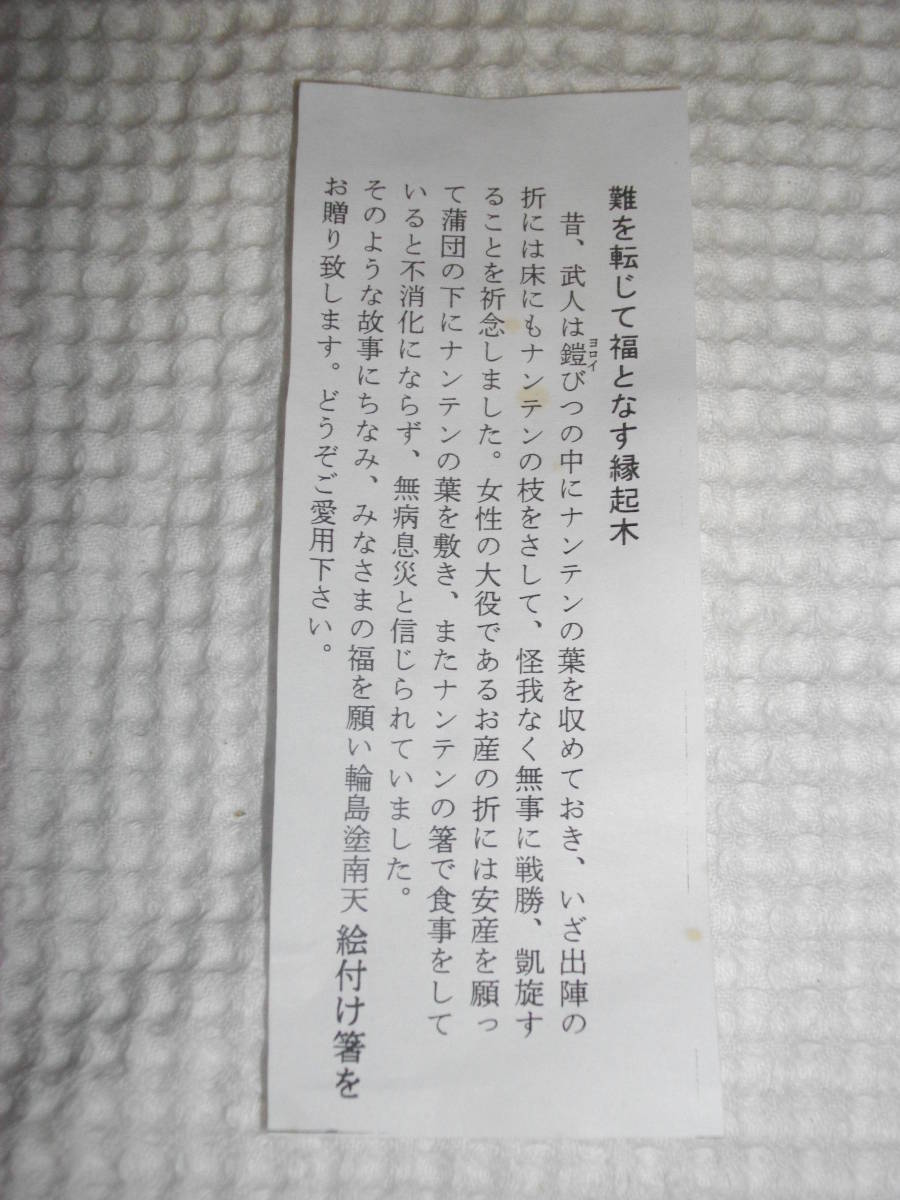 難を転じて福となす縁起木
昔、武人は鎧びつの中にナンテンの葉を収めておき、いざ出陣の
ヨロイ
折には床にもナンテンの枝をさして、怪我なく無事に戦勝、凱旋す
ることを祈念しました。女性の大役であるお産の折には安産を願っ
て蒲団の下にナンテンの葉を敷き、またナンテンの箸で食事をして
いると不消化にならず、無病息災と信じられていました。
そのような故事にちなみ、みなさまの福を願い輪島塗南天絵付け箸を
お贈り致します。どうぞご愛用下さい。